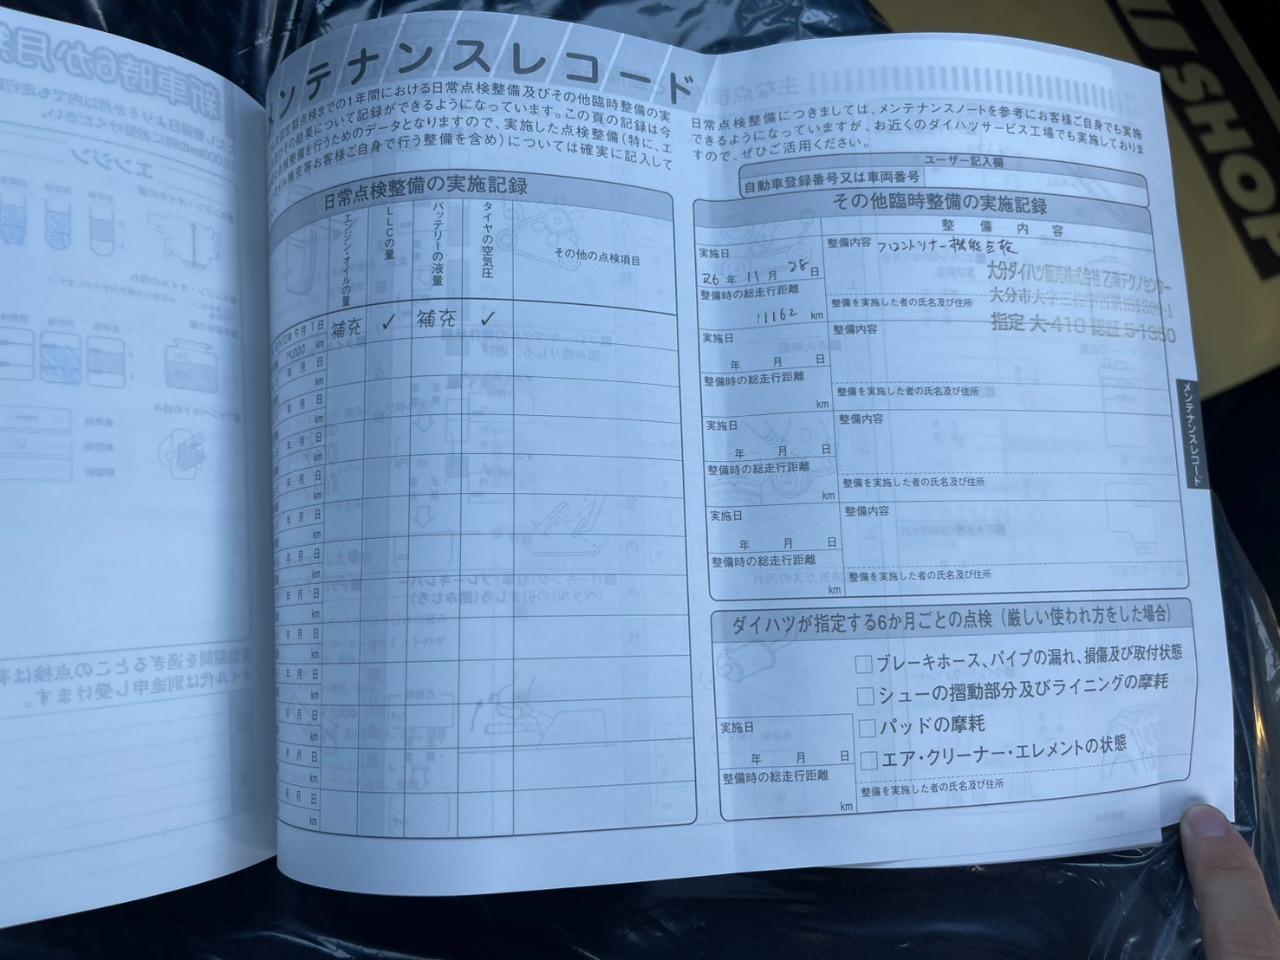 メンテナンスレコード
検までの1年間における日常点検整備及びその他臨時整備の実
の結果について記録ができるようになっています。この頁の記録は今
検整備を行うためのデータとなりますので、実施した点検整備(特に、エ
オイル補充等お客様ご自身で行う整備を含め)については確実に記入して
日常点検整備の実施記録
エンジン・オイルの量
LLCの量
バッテリーの液量
タイヤの空気圧
その他の点検項目
年5月1日
補充 ✓ 補充 ✓
15,000 km
年 月 日
km
年 月 日
km
年 月 日
km
年 月 日
km
年 月 日
km
年 月 日
km
年 月 日
km
年 月 日
km
年 月 日
km
年 月 日
km
年 月 日
km
日常点検整備につきましては、メンテナンスノートを参考にお客様ご自身でも実施
できるようになっていますが、お近くのダイハツサービス工場でも実施しておりま
すので、ぜひご活用ください。
ユーザー記入欄
自動車登録番号又は車両番号
その他臨時整備の実施記録
整備内容
実施日
26年11月28日
整備時の総走行距離
11162 km
整備内容 フロントソナー機能点検
大分ダイハツ販売株式会社 乙津テクノセンター
大分市大字三佐字
指定 大-410 認証 5-1350
整備を実施した者の氏名及び住所
実施日
年 月 日
整備時の総走行距離
km
整備内容
整備を実施した者の氏名及び住所
実施日
年 月 日
整備時の総走行距離
km
整備内容
整備を実施した者の氏名及び住所
実施日
年 月 日
整備時の総走行距離
km
整備内容
整備を実施した者の氏名及び住所
ダイハツが指定する6か月ごとの点検(厳しい使われ方をした場合)
□ブレーキホース、パイプの漏れ、損傷及び取付状態
□シューの摺動部分及びライニングの摩耗
□パッドの摩耗
□エア・クリーナー・エレメントの状態
実施日
年 月 日
整備時の総走行距離
km
整備を実施した者の氏名及び住所
メンテナンスレコード
U SHOP